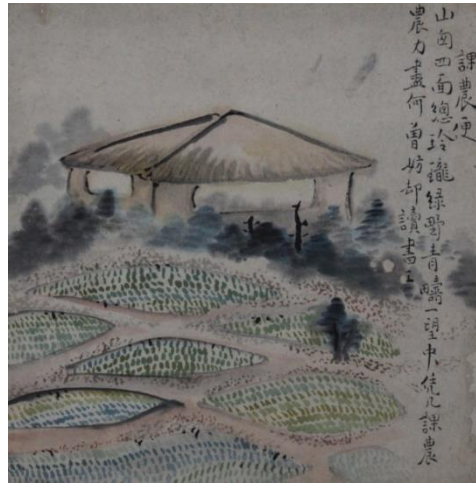 課農便
山囪四面總玲瓏綠野青疇一望中凭几課農
農力盡何曾妨却讀書工